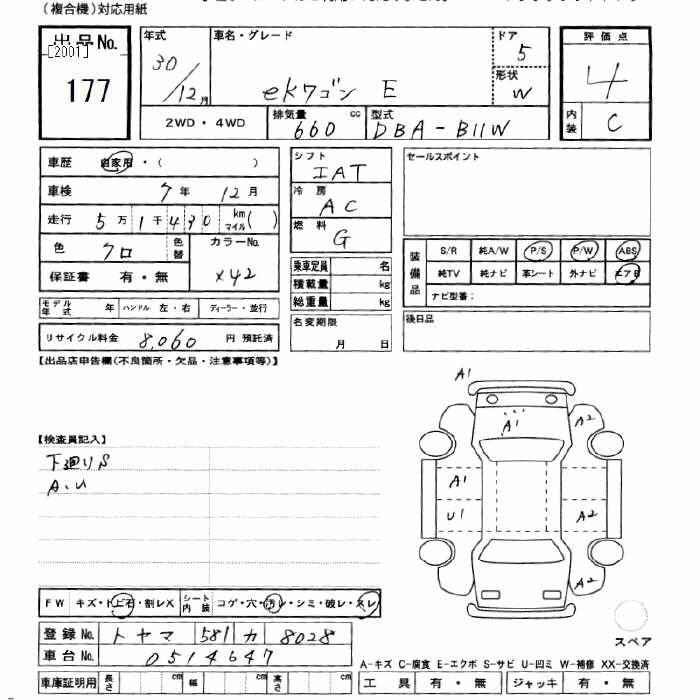 (複合機)対応用紙
出品No.
[2001]
177
年式
30/12月
車名・グレード
ekワゴン E
ドア
5
形状
W
評価点
4
内装
C
2WD・4WD
排気量
660 cc
型式
DBA-B11W
車歴 自家用・( )
車検 7年 12月
走行 5万1千430 km マイル( )
色 クロ 色替
カラーNo. X42
保証書 有・無
モデル年式 年 ハンドル 左・右 ディーラー・並行
リサイクル料金 8,060 円 預託済
シフト
IAT
冷房
AC
燃料
G
乗車定員 名
積載量 kg
総重量 kg
名変期限
月 日
セールスポイント
装備品
S/R 純A/W P/S P/W ABS
純TV 純ナビ 革シート 外ナビ エアB
ナビ型番:
後日品
【出品店申告欄(不良箇所・欠品・注意事項等)】
【検査員記入】
下廻りS
A、U
A1
A1
A2
A1
U1
A2
A2
スペア
FW キズ・トビ石・割レX シート内装 コゲ・穴・汚レ・シミ・破レ・スレ
登録No. トヤマ 581 カ 8028
車台No. 0514647
車庫証明用 長さ cm 幅 cm 高さ cm
A-キズ C-腐食 E-エクボ S-サビ U-凹ミ W-補修 XX-交換済
工具 有・無 ジャッキ 有・無